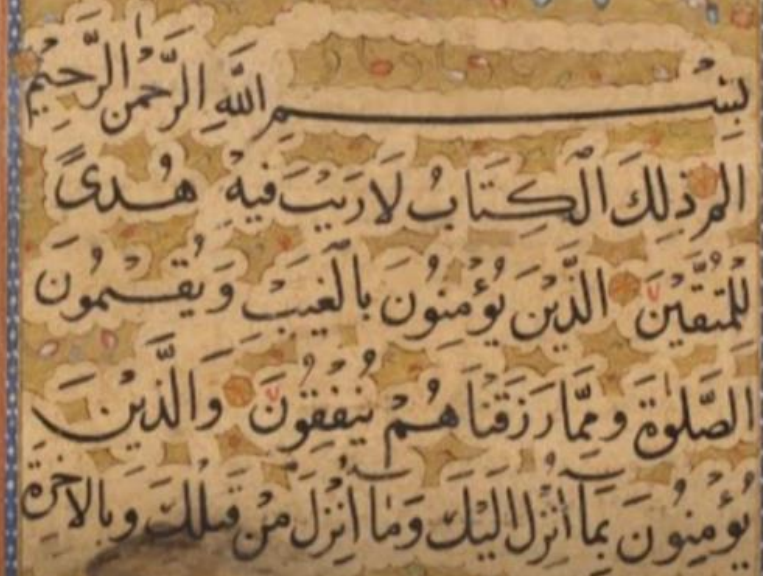 بِسْمِ اللَّهِ الرَّحْمٰنِ الرَّحِيمِ
الم ذٰلِكَ الْكِتَابُ لَا رَيْبَ فِيهِ هُدًى
لِلْمُتَّقِينَ الَّذِينَ يُؤْمِنُونَ بِالْغَيْبِ وَيُقِيمُونَ
الصَّلٰوةَ وَمِمَّا رَزَقْنَاهُمْ يُنْفِقُونَ وَالَّذِينَ
يُؤْمِنُونَ بِمَا أُنْزِلَ إِلَيْكَ وَمَا أُنْزِلَ مِنْ قَبْلِكَ وَبِالْآخِرَةِ